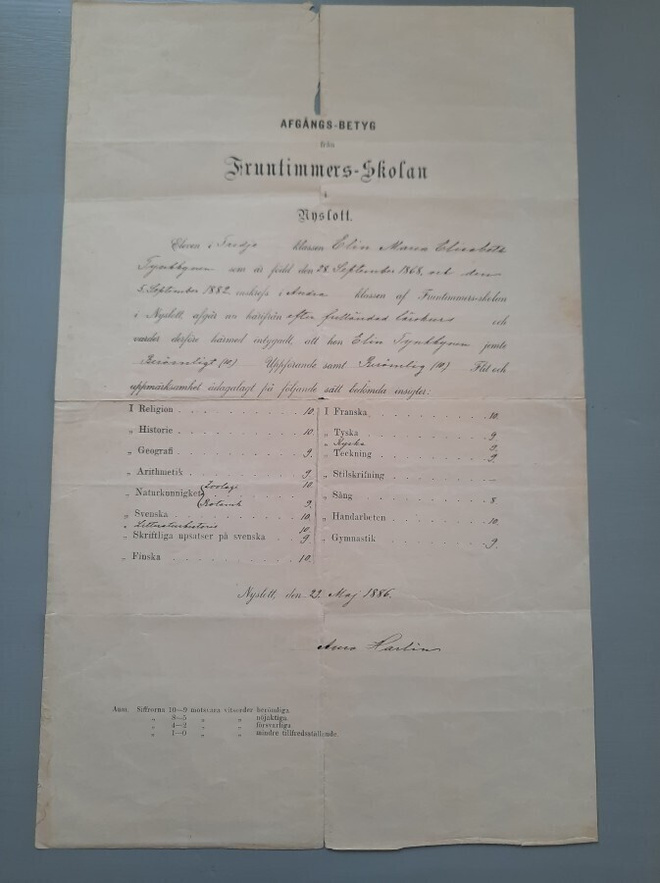 AFGÅNGS-BETYG
från
Fruntimmers-Skolan
i
Nyslott.
Eleven i Tredje klassen Elin Maria Elisabeth
Tynkkynen som är född den 28 September 1868, och den
5 September 1882 inskrefs i Andra klassen af Fruntimmers-skolan
i Nyslott, afgår nu härifrån efter fulländad lärokurs och
varder derföre härmed intygadt, att hon Elin Tynkkynen jemte
Berömligt (10) Uppförande samt Berömlig (10) Flit och
uppmärksamhet ådagalagt på följande sätt bedömda insigter:
I Religion 10.
„ Historie 10.
„ Geografi 9.
„ Arithmetik 9.
„ Naturkunnighet Zoologi 10.
Botanik 9.
„ Svenska 10.
„ Litteraturhistorie 10.
„ Skriftliga upsatser på svenska 9.
„ Finska 10.
I Franska 10.
„ Tyska 9.
„ Ryska 9.
„ Teckning 9.
„ Stilskrifning —
„ Sång 8
„ Handarbeten 10.
„ Gymnastik 9.
Nyslott, den 22 Maj 1886.
Anna Harlin
Anm. Siffrorna 10—9 motsvara vitsordet berömliga.
„ 8—5 „ „ nöjaktiga.
„ 4—2 „ „ försvarliga.
„ 1—0 „ „ mindre tillfredsställande.